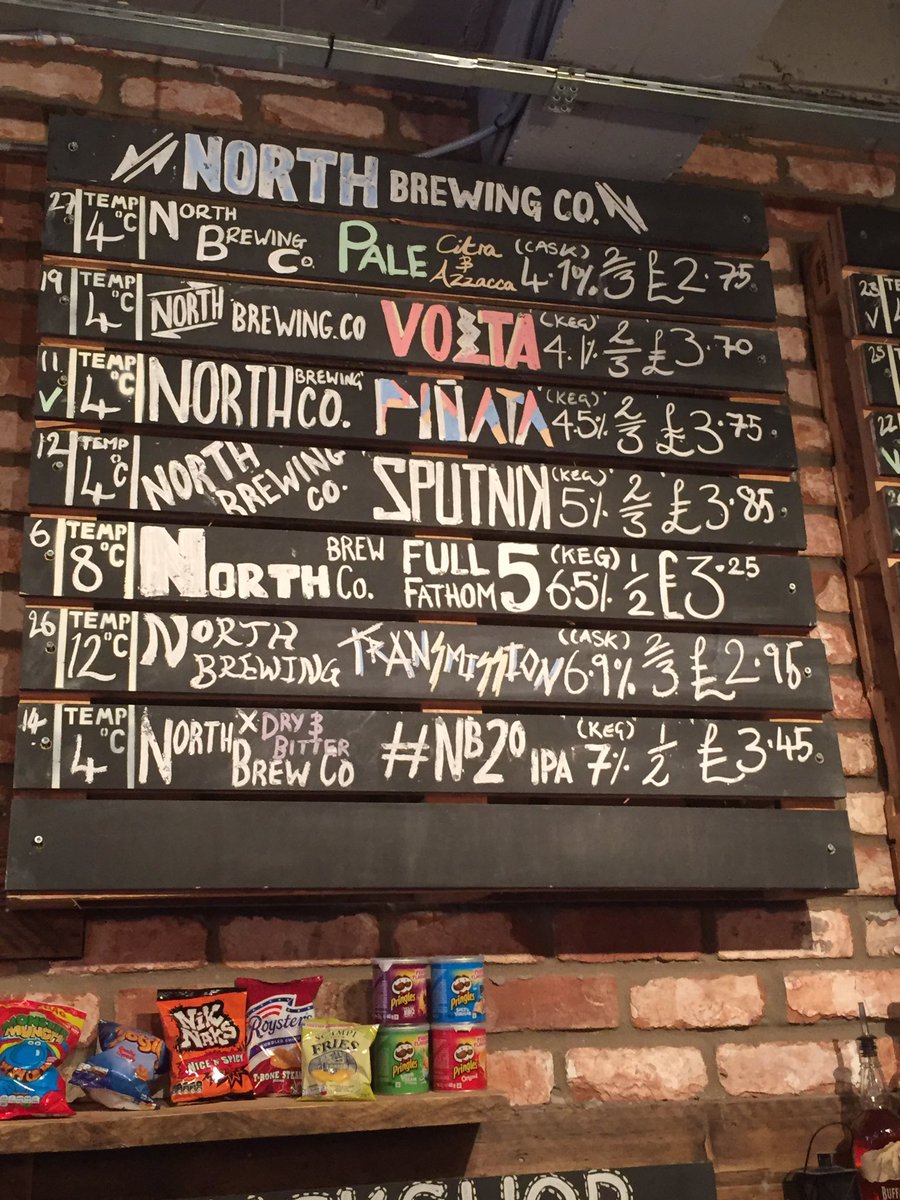 NORTH BREWING CO.
27 TEMP 4°C NORTH BREWING CO. PALE Citra & Azzacca (CASK) 4.1% 2/3 £2.75
19 TEMP 4°C NORTH BREWING.CO VOLTA (KEG) 4.1% 2/3 £3.70
11 ✓ TEMP 4°C NORTH BREWING CO. PIÑATA (KEG) 4.5% 2/3 £3.75
12 TEMP 4°C NORTH BREWING CO. SPUTNIK (KEG) 5% 2/3 £3.85
6 TEMP 8°C NORTH BREW CO. FULL FATHOM 5 (KEG) 6.5% 1/2 £3.25
26 TEMP 12°C NORTH BREWING TRANSMISSION (CASK) 6.9% 2/3 £2.95
14 TEMP 4°C NORTH X DRY & BITTER BREW CO #NB20 IPA (KEG) 7% 1/2 £3.45
23
25
22
MONSTER MUNCH
NIK NAKS
NICE 'N' SPICY
Roysters
T-BONE STEAK
SCAMPI FRIES
Pringles
Pringles
Pringles
Pringles
Original